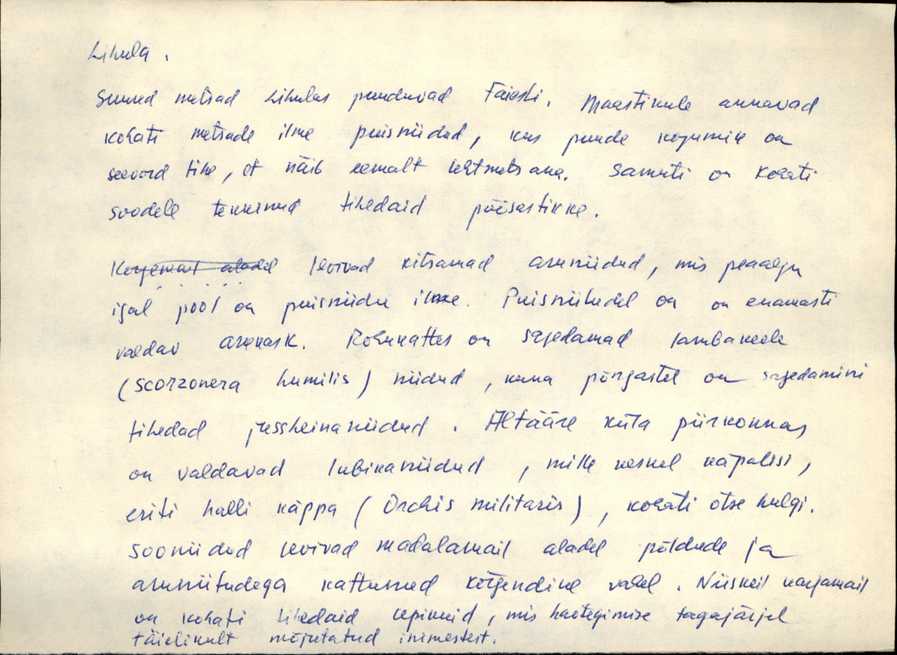 Lihula.
Suured metsad Lihulas puuduvad täiesti. Maastikule annavad
kohati metsade ilme puisniidud, kus puude kogumik on
seevord tihe, et näib eemalt lehtmetsana. Samuti on kohati
soodele tekkinud tihedaid põõsastikke.
Kõrgemail aladel levivad kitsamad aruniidud, mis peaaegu
igal pool on puisniidu ilme. Puisniitudel on on enamasti
valdav arukask. Rohukattes on sagedamad
(Scorzonera humilis) niidud, kuna põrgastel on sagedamini
tihedad jussheinaniidud. Alttääre küla piirkonnas
on valdavad lubikaniidud, mille keskel käpalisi,
eriti halli käppa (Orchis militaris), kohati otse hulgi.
Sooniidud levivad madalamail aladel põldude ja
aruniitudega kattunud kõrgendike vahel. Niiskeil karjamail
on kohati tihedaid lepikuid, mis haotegimise tagajärjel
täielikult mõjutatud inimestest.